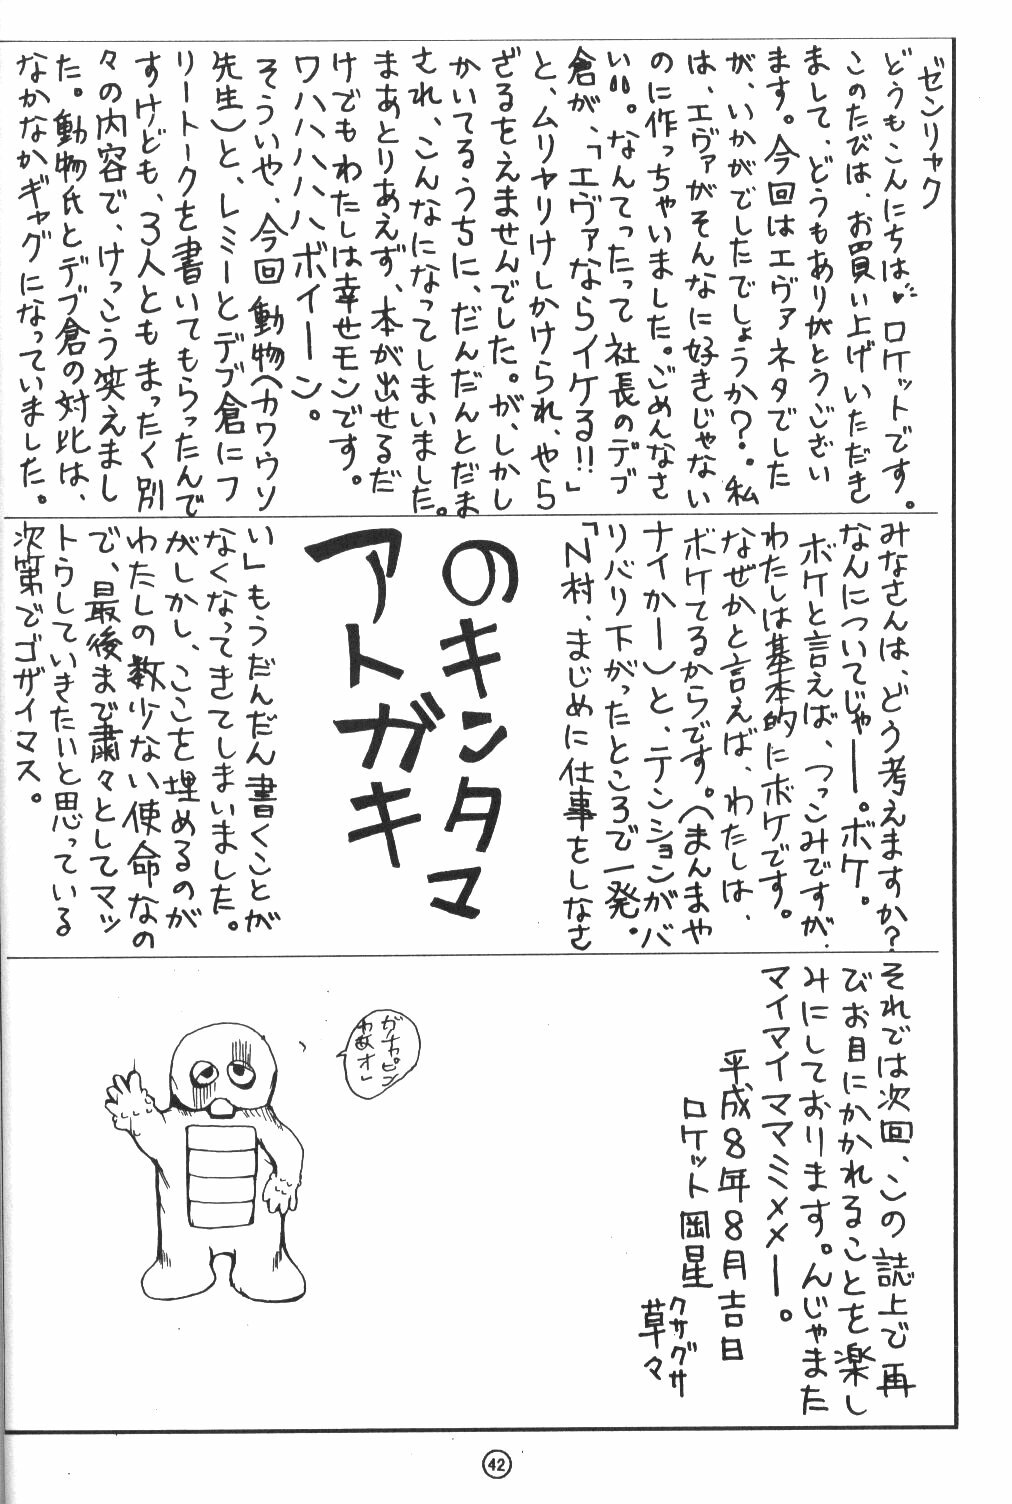 ゼンリャク
どうもこんにちは♥ロケットです。
このたびは、お買い上げいただき
まして、どうもありがとうござい
ます。今回はエヴァネタでした
が、いかがでしたでしょうか?.私
は、エヴァがそんなに好きじゃない
のに作っちゃいました。ごめんなさ
い!!。なんてったって社長のデブ
倉が、「エヴァならイケる!!」
と、ムリヤリけしかけられ、やら
ざるをえませんでした。が、しかし
かいてるうちに、だんだんとだま
され、こんなになってしまいました。
まあとりあえず、本が出せるだ
けでもわたしは幸せモンです。
ワハハハハハボイーン。
そういや、今回動物(カワウソ
先生)と、レミーとデブ倉にフ
リートークを書いてもらったんで
すけども、3人ともまったく別
々の内容で、けっこう笑えまし
た。動物氏とデブ倉の対比は、
なかなかギャグになっていました。
みなさんは、どう考えますか?
なんについてじゃー。ボケ。
ボケと言えば、つっこみですが、
わたしは基本的にボケです。
なぜかと言えば、わたしは、
ボケてるからです。(まんまや
ナイかー)と、テンションがバ
リバリ下がったところで一発.
「N村、まじめに仕事をしなさ
のキンタマ
アトガキ
い」もうだんだん書くことが
なくなってきてしまいました。
がしかし、ここを埋めるのが
わたしの数少ない使命なの
で、最後まで粛々としてマッ
トウしていきたいと思っている
次第でゴザイマス。
それでは次回、この誌上で再
びお目にかかれることを楽し
みにしております。んじゃまた
マイマイママミメメー。
平成8年8月吉日
ロケット岡星
クサグサ
草々
ガチャピン
わオ、
42